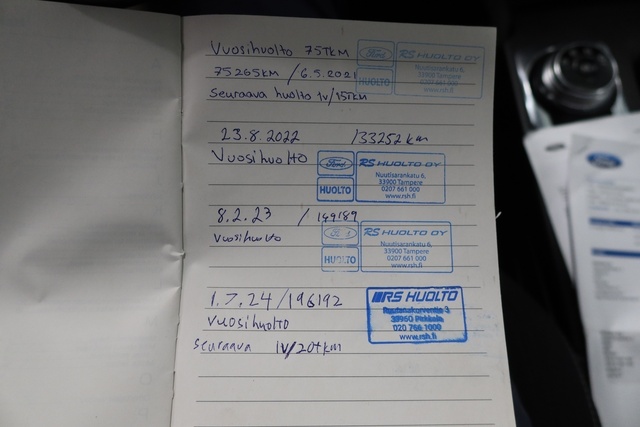 Vuosihuolto 75TKM
75265KM / 6.5.2021
Seuraava huolto 1v/15TKM
Ford
HUOLTO
RS HUOLTO OY
Nuutisarankatu 6,
33900 Tampere
0207 661 000
www.rsh.fi
23.8.2022 133252 km
Vuosihuolto
Ford
HUOLTO
RS HUOLTO OY
Nuutisarankatu 6,
33900 Tampere
0207 661 000
www.rsh.fi
8.2.23 / 149189
Vuosihuolto
HUOLTO
RS HUOLTO OY
Nuutisarankatu 6,
33900 Tampere
0207 661 000
www.rsh.fi
1.7.24/196192
Vuosihuolto
seuraava 1v/20tkm
RS HUOLTO
33960 Pirkkala
020 766 1000
www.rsh.fi